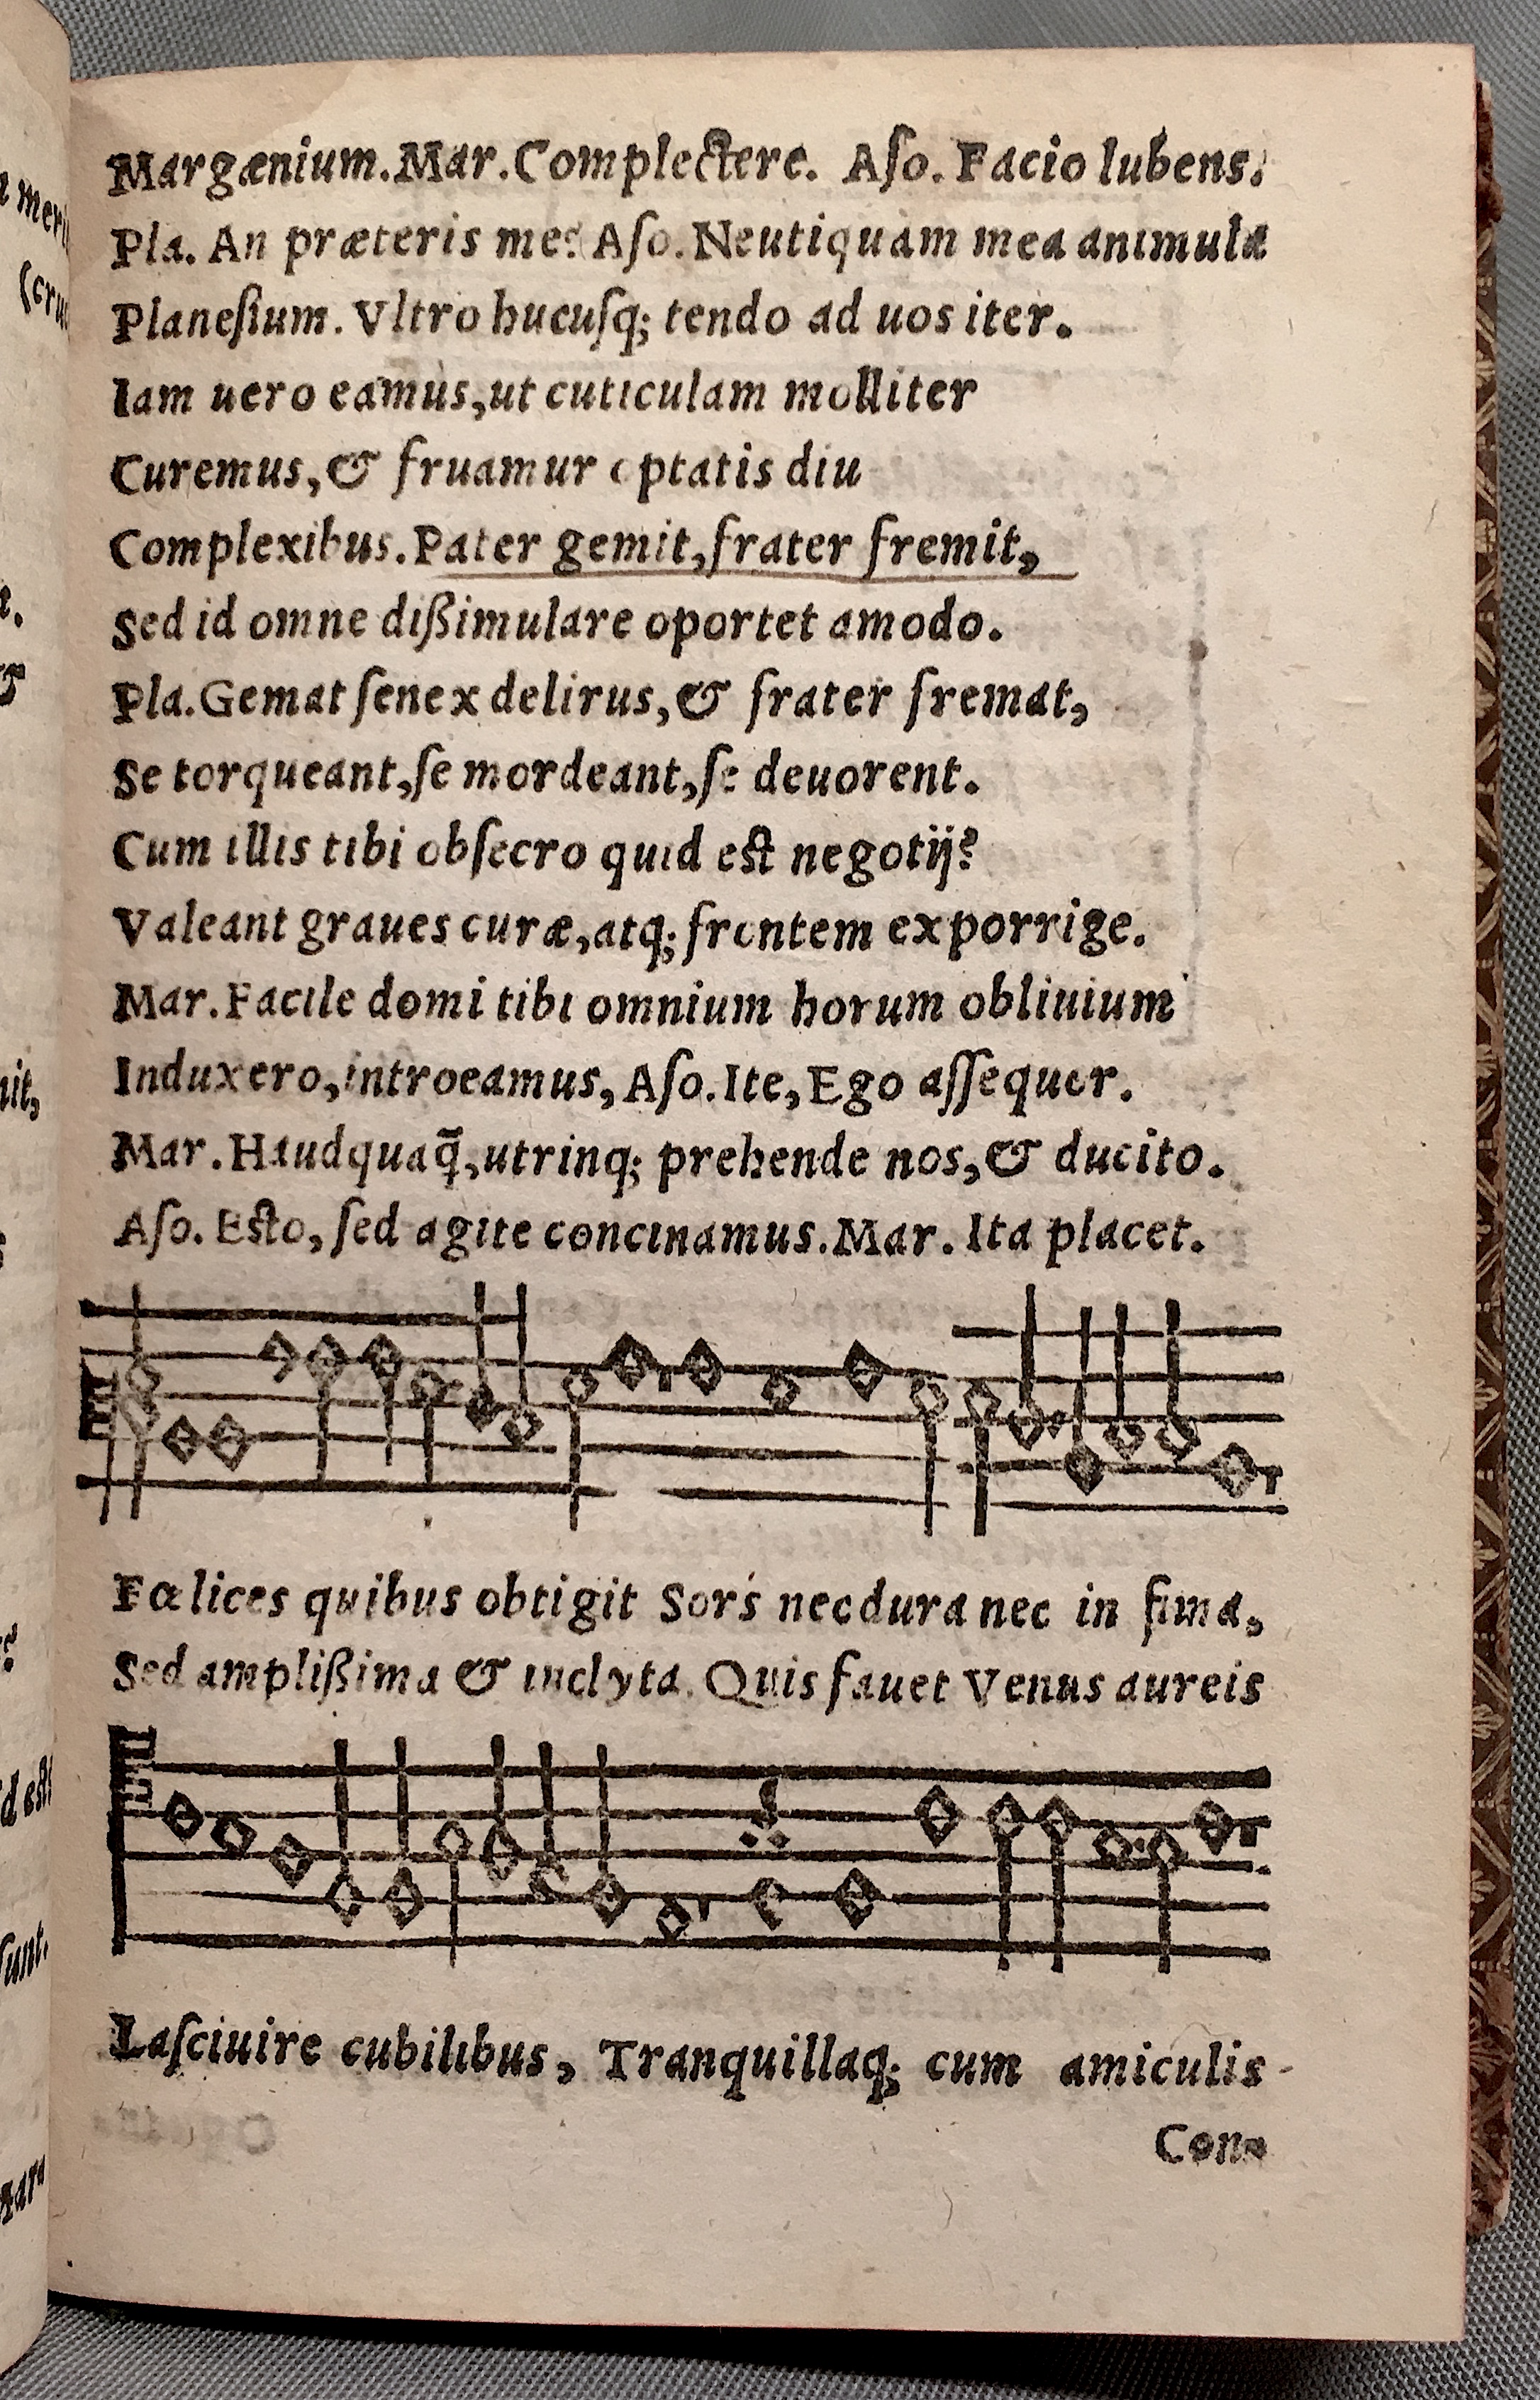 Margænium. Mar. Complectere. Aſo. Facio lubens.
Pla. An præteris me? Aſo. Neutiquam mea animula
Planeſium. Vltro hucuſq; tendo ad uos iter.
Iam uero eamus, ut cuticulam molliter
Curemus, & fruamur optatis diu
Complexibus. Pater gemit, frater fremit,
Sed id omne dißimulare oportet amodo.
Pla. Gemat ſenex delirus, & frater fremat,
Se torqueant, ſe mordeant, ſe deuorent.
Cum illis tibi obſecro quid eſt negotij?
Valeant graues curæ, atq; frontem exporrige.
Mar. Facile domi tibi omnium horum obliuium
Induxero, introeamus, Aſo. Ite, Ego aſſequor.
Mar. Haudquaq̄, utrinq; prehende nos, & ducito.
Aſo. Eſto, ſed agite concinamus. Mar. Ita placet.
Fœlices quibus obtigit Sors nec dura nec in fima,
Sed amplißima & inclyta. Quis fauet Venus aureis
Laſciuire cubilibus, Tranquillaq; cum amiculis
Con-